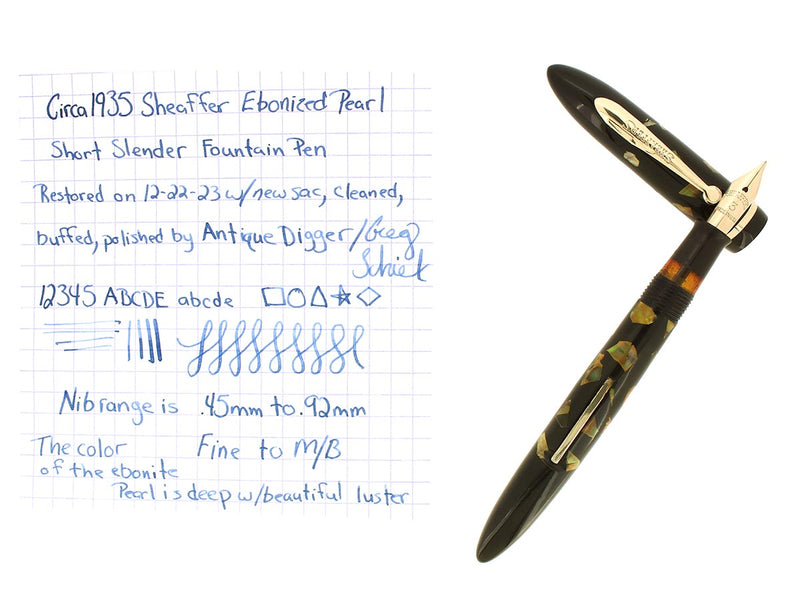 Circa 1935 Sheaffer Ebonized Pearl
Short Slender Fountain Pen
Restored on 12-22-23 w/new sac, cleaned,
buffed, polished by Antique Digger/Greg
Schiek
12345 ABCDE abcde
Nib range is .45mm to .92mm
The color
of the ebonite
Fine to M/B
Pearl is deep w/beautiful luster
3